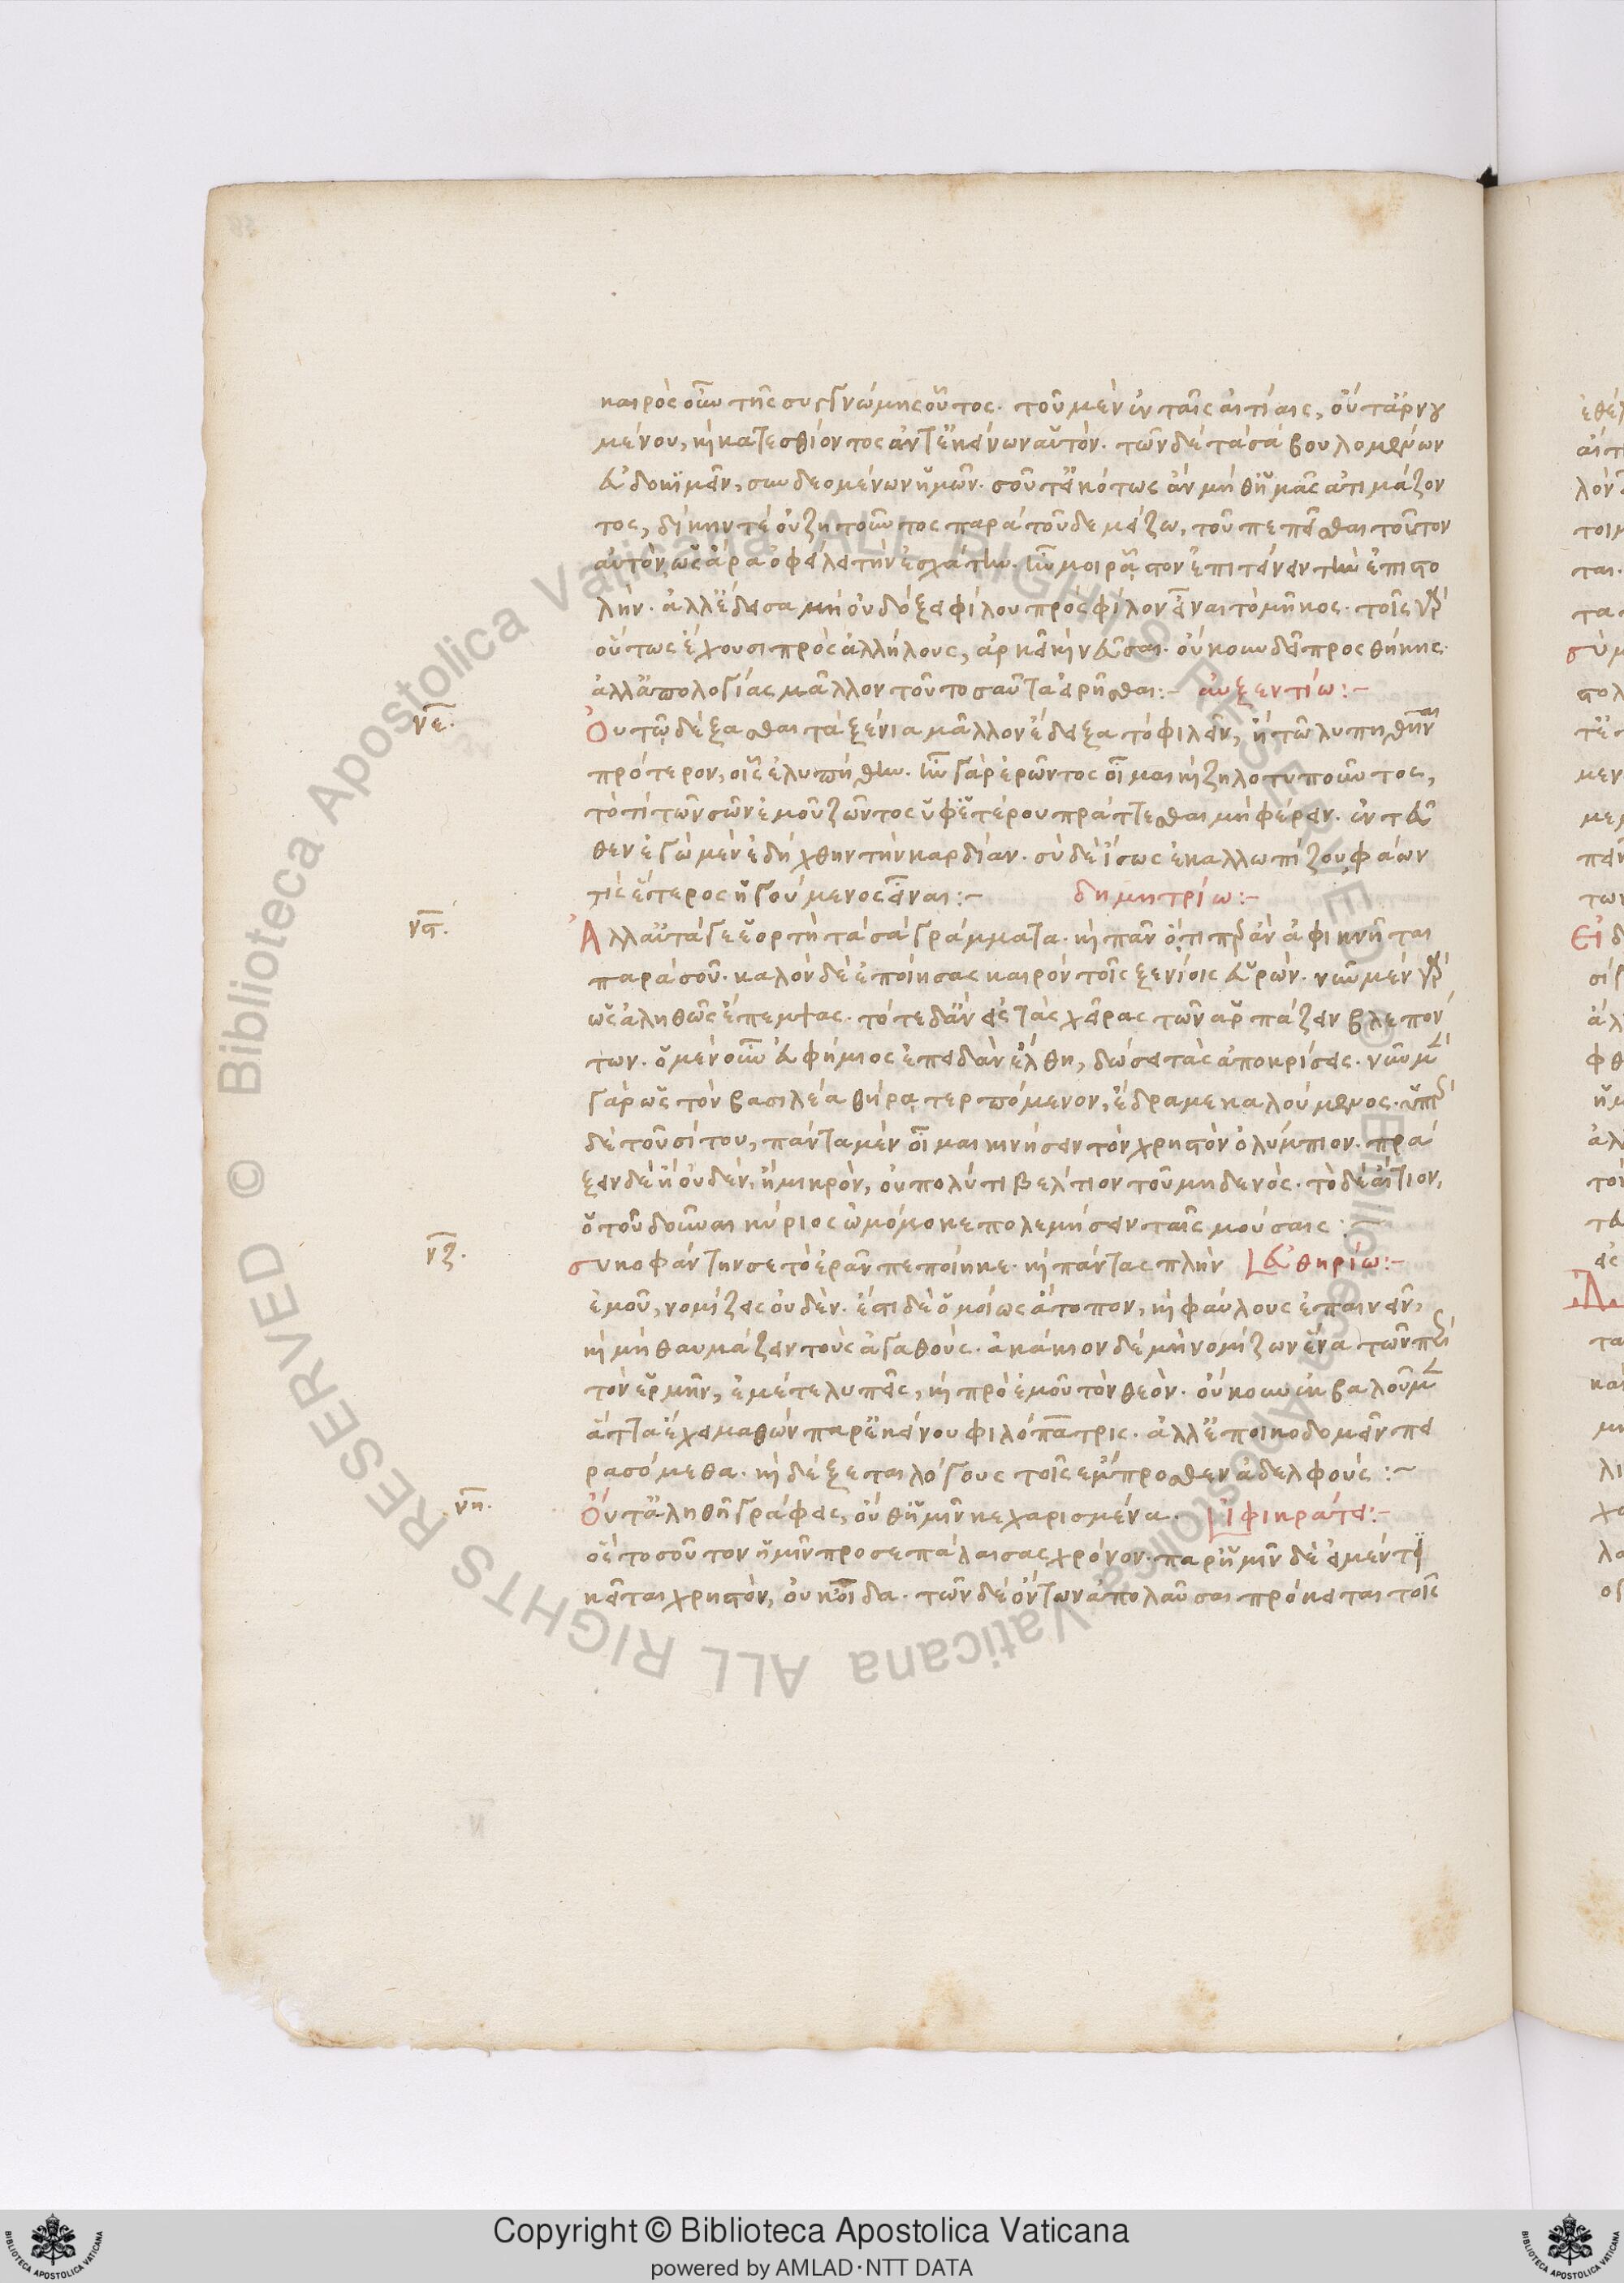 καιρὸς οὖν τῆς συγγνώμης οὗτος. τοῦ μὲν ἐν ταῖς αἰτίαις, οὔτ' ἀρνου
μένου, καὶ κατεσθίοντος ἀντ' ἐκείνων αὑτόν. τῶν δὲ τὰ σὰ βουλομένων
εὐδοκιμεῖν, συνδεομένων ἡμῶν. σοῦ τ' εἰκότως ἂν μὴ θ' ἡμᾶς ἀτιμάζον
τος, δίκην τὲ οὐ ζητοῦντος παρὰ τοῦδε μείζω, τοῦ πεπεῖσθαι τοῦτον
αὐτὸν, ὡς ἄρα ὀφείλει τὴν ἐσχάτην. ἦν μοι ῥᾷστον ἐπιτείνειν τὴν ἐπιστο
λήν. ἀλλ' ἔδεισα μὴ οὐ δόξει φίλου πρὸς φίλον εἶναι τὸ μῆκος. τοῖς γὰρ
οὕτως ἔχουσι πρὸς ἀλλήλους, ἀρκεῖ κἂν νεῦσαι. οὔκουν δεῖ προσθήκης.
ἀλλ' ἀπολογίας μᾶλλον τοῦ τοσαῦτα εἰρῆσθαι:- αὐξεντίω:-
νε.
Οὐ τῷ δέξασθαι τὰ ξένια μᾶλλον ἔδειξα τὸ φιλεῖν, ἢ τῶ λυπηθῆναι
πρότερον, οἷς ἐλυπήθην. ἦν γὰρ ἐρῶντος οἶμαι καὶ ζηλοτυποῦντος,
τὸ τὶ τῶν σῶν ἐμοῦ ζῶντος ὑφ' ἑτέρου πράττεσθαι μὴ φέρειν. ἐντεῦ
θεν ἐγὼ μὲν ἐδήχθην τὴν καρδίαν. σὺ δὲ ἴσως ἐκαλλωπίζου, φάων
τις ἕτερος ἡγούμενος εἶναι:- δημητρίω:-
νς.
Ἀλλ' αὐτά γε ἑορτὴ τὰ σὰ γράμματα. καὶ πᾶν ὅ,τι περ ἂν ἀφικνῆται
παρὰ σοῦ. καλὸν δὲ ἐποίησας καιρὸν τοῖς ξενίοις εὑρών. νῦν μὲν γὰρ
ὡς ἀληθῶς ἔπεμψας. τότε δ' ἂν εἰς τὰς χεῖρας τῶν ἁρπάζειν βλεπόν
των. ὁ μὲν οὖν εὐφήμιος ἐπειδὰν ἔλθη, δώσει τὰς ἀποκρίσεις. νῦν μὲν
γὰρ ὡς τὸν βασιλέα θήρᾳ τερπόμενον, ἔδραμε καλούμενος. ὑπὲρ
δὲ τοῦ σίτου, πάντα μὲν οἶμαι κινήσειν τὸν χρηστὸν ὀλύμπιον. πρά
ξειν δὲ ἢ οὐδὲν, ἢ μικρὸν, οὐ πολύ τι βέλτιον τοῦ μηδενός. τὸ δὲ αἴτιον,
ὁ τοῦ δοῦναι κύριος ὀμώμοκε πολεμήσειν ταῖς μούσαις:-
νζ.
συκοφάντην σε τὸ ἐρᾶν πεποίηκε. καὶ πάντας πλὴν εὐθηρίω:-
ἐμοῦ, νομίζεις οὐδέν. ἔστι δὲ ὁμοίως ἄτοπον, καὶ φαύλους ἐπαινεῖν,
καὶ μὴ θαυμάζειν τοὺς ἀγαθούς. ἀκάκιον δὲ μὴ νομίζων ἕνα τῶν περὶ
τὸν ἑρμῆν, ἐμέ τε λυπεῖς, καὶ πρὸ ἐμοῦ τὸν θεόν. οὔκουν ἐκβαλοῦμεν
ἅττα ἔχει μαθὼν παρ' ἐκείνου φιλόπατρις. ἀλλ' ἐποικοδομεῖν πει
ρασόμεθα. καὶ δέξεται λόγους τοῖς ἔμπροσθεν ἀδελφούς:~
νη.
Οὔτ' ἀληθῆ γράφεις, οὔθ' ἡμῖν κεχαρισμένα. ἰφικράτει:-
ὃς τοσοῦτον ἡμῖν προσεπάλαισας χρόνον. παρ' ἡμῖν δὲ εἰ μέν τι
κεῖται χρηστὸν, οὐκ οἶδα. τῶν δὲ ὄντων ἀπολαῦσαι πρόκειται τοῖς
Copyright © Biblioteca Apostolica Vaticana
powered by AMLAD·NTT DATA